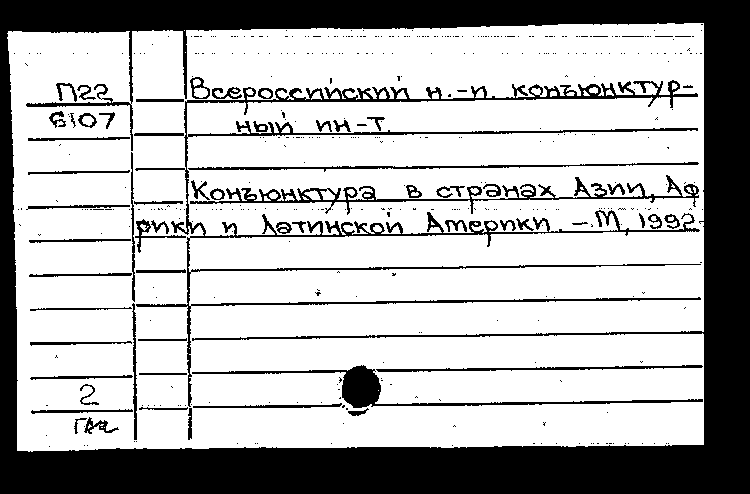 П22 Всероссийский н.-и. конъюнктур-
6107 ный ин-т.
Конъюнктура в странах Азии, Аф
рики и Латинской Америки. - М, 1992-
2